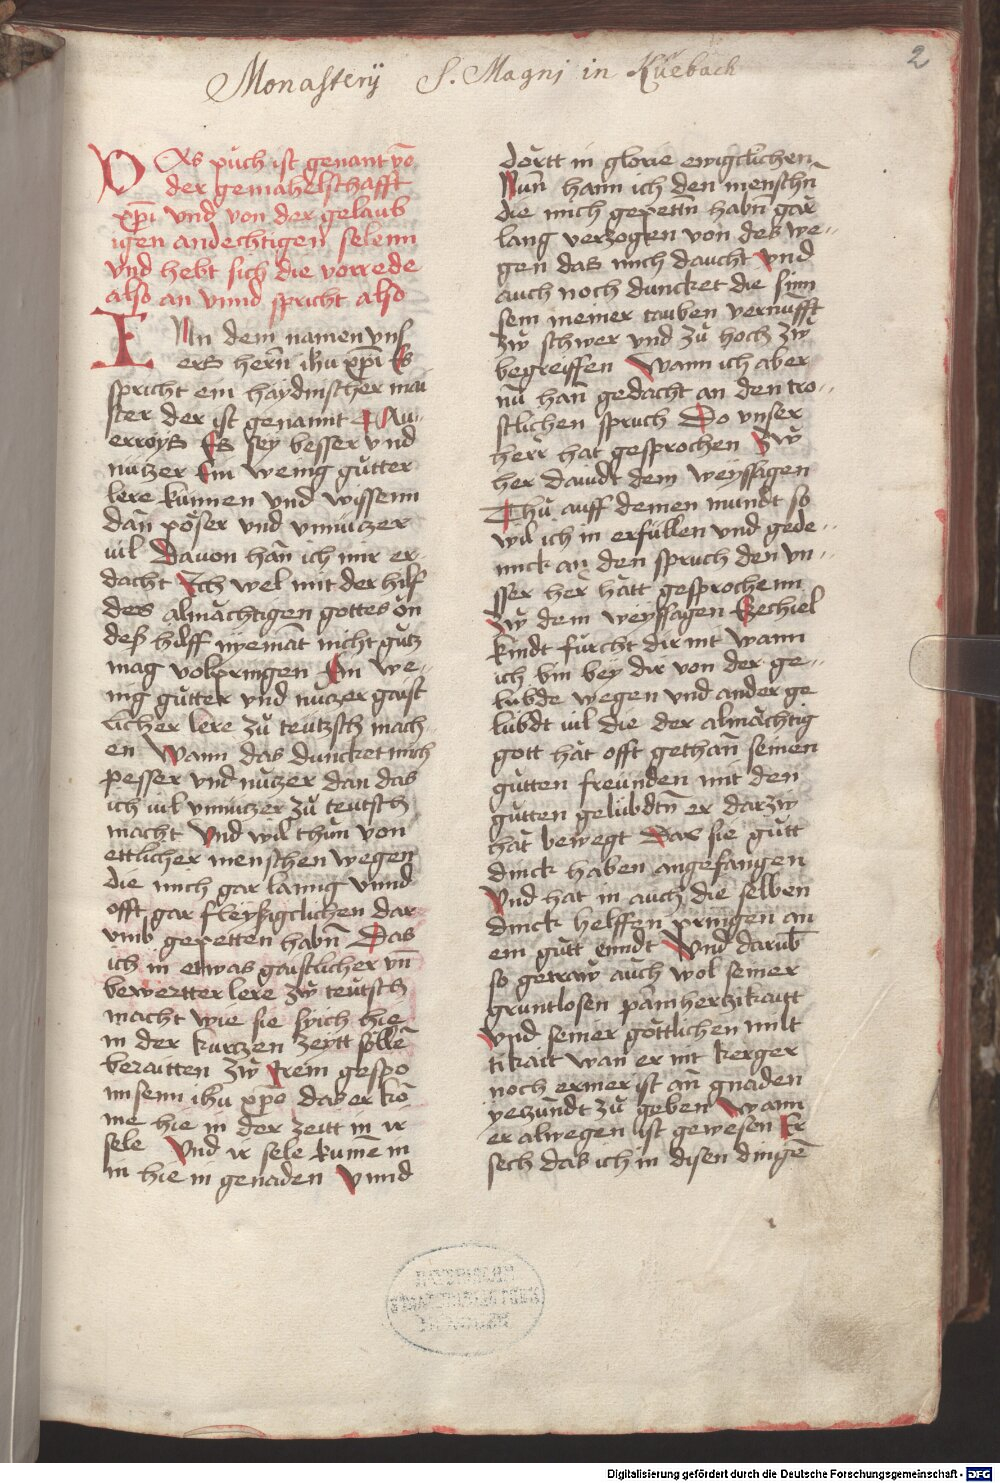 Monasterij S. Magni in Küebach
2
DAs püch ist genant võ
der gemahelschafft
xp̄i vnd von der gelaub
igen andechtigen selenn
vnd hebt sich die vorrede
also an vnnd spricht also
IN dem namen vns
ers herñ ihū xp̄i Es
spricht ein haydnischer mai
ster der ist genannt Au-
erroys Es sey besser vnd
nützer Ein wenig gůtter
lere künnen vnd wissenn
dañ pöser vnd vnnüczer
uil Davon hañ ich mir er-
dacht Ich wel mit der hilf
des almächtigen gottes on
deß hilff nyemat nicht gůtz
mag volpringen Ein we-
nig gůtter vnd nüczer gaist
licher lere zů teützsch mach
en Wann das duncket mich
pesser vnd nüczer dan das
ich uil vnnüczer zů teutsch
macht Vnd wil thůn von
ettlicher menschen wegen
die mich gar lanng vnnd
offt gar fleyßigclichen dar
vmb gepetten habñ Das
ich in etwas gaistlicher vñ
bewertter lere zẘ teutsch
macht wie sie sich hie
in der kurczen zeytt sölle
beraitten zẘ Irem gespo
nnsenn ihū xp̄o das er kō
me hie in der zeitt in ir
sele Vnd ir sele kum̄e in
in hie in genaden Vnnd
dörtt in glorie ewigclichen
Nun hann ich den menschñ
die mich gepettñ habñ gar
lang verzogen von des we-
gen das mich daucht vnd
auch noch duncket die sinn
sein meiner tauben vernufft
zẘ schwer vnd zů hoch zẘ
begreiffen Wann ich aber
nu han gedacht an den tro-
stlichen spruch Do vnser
herr hat gesprochen Zẘ
her dauidt dem weyssagen
Thů auff deinen mundt so
wil ich in erfüllen vnd gede-
nnck an den spruch den vn-
sser her hatt gesprochenn
Zẘ dem weyssagen Ezechiel
kindt fürcht dir nit wann
ich bin bey dir von der ge-
lübde wegen vnd ander ge
lübdt uil die der almächtig
gott hat offt gethañ seinen
gůtten freunden mit den
gůtten gelübdtñ er darzẘ
hat bewegt Das sie gůtt
dinck haben angefangen
Vnd hat in auch die selben
dinck helffen pringen an
ein gůtt enndt Vnd darub̄
so getraw auch wol seiner
gruntlosen parmhertzikaitt
Vnd seiner göttlichen milt
tikait wan er nit kerger
noch ermer ist añ gnaden
yeczundt zů geben Wann
er alwegen ist gewesen Er
sech das ich in disen dingē
Digitalisierung gefördert durch die Deutsche Forschungsgemeinschaft - DFG